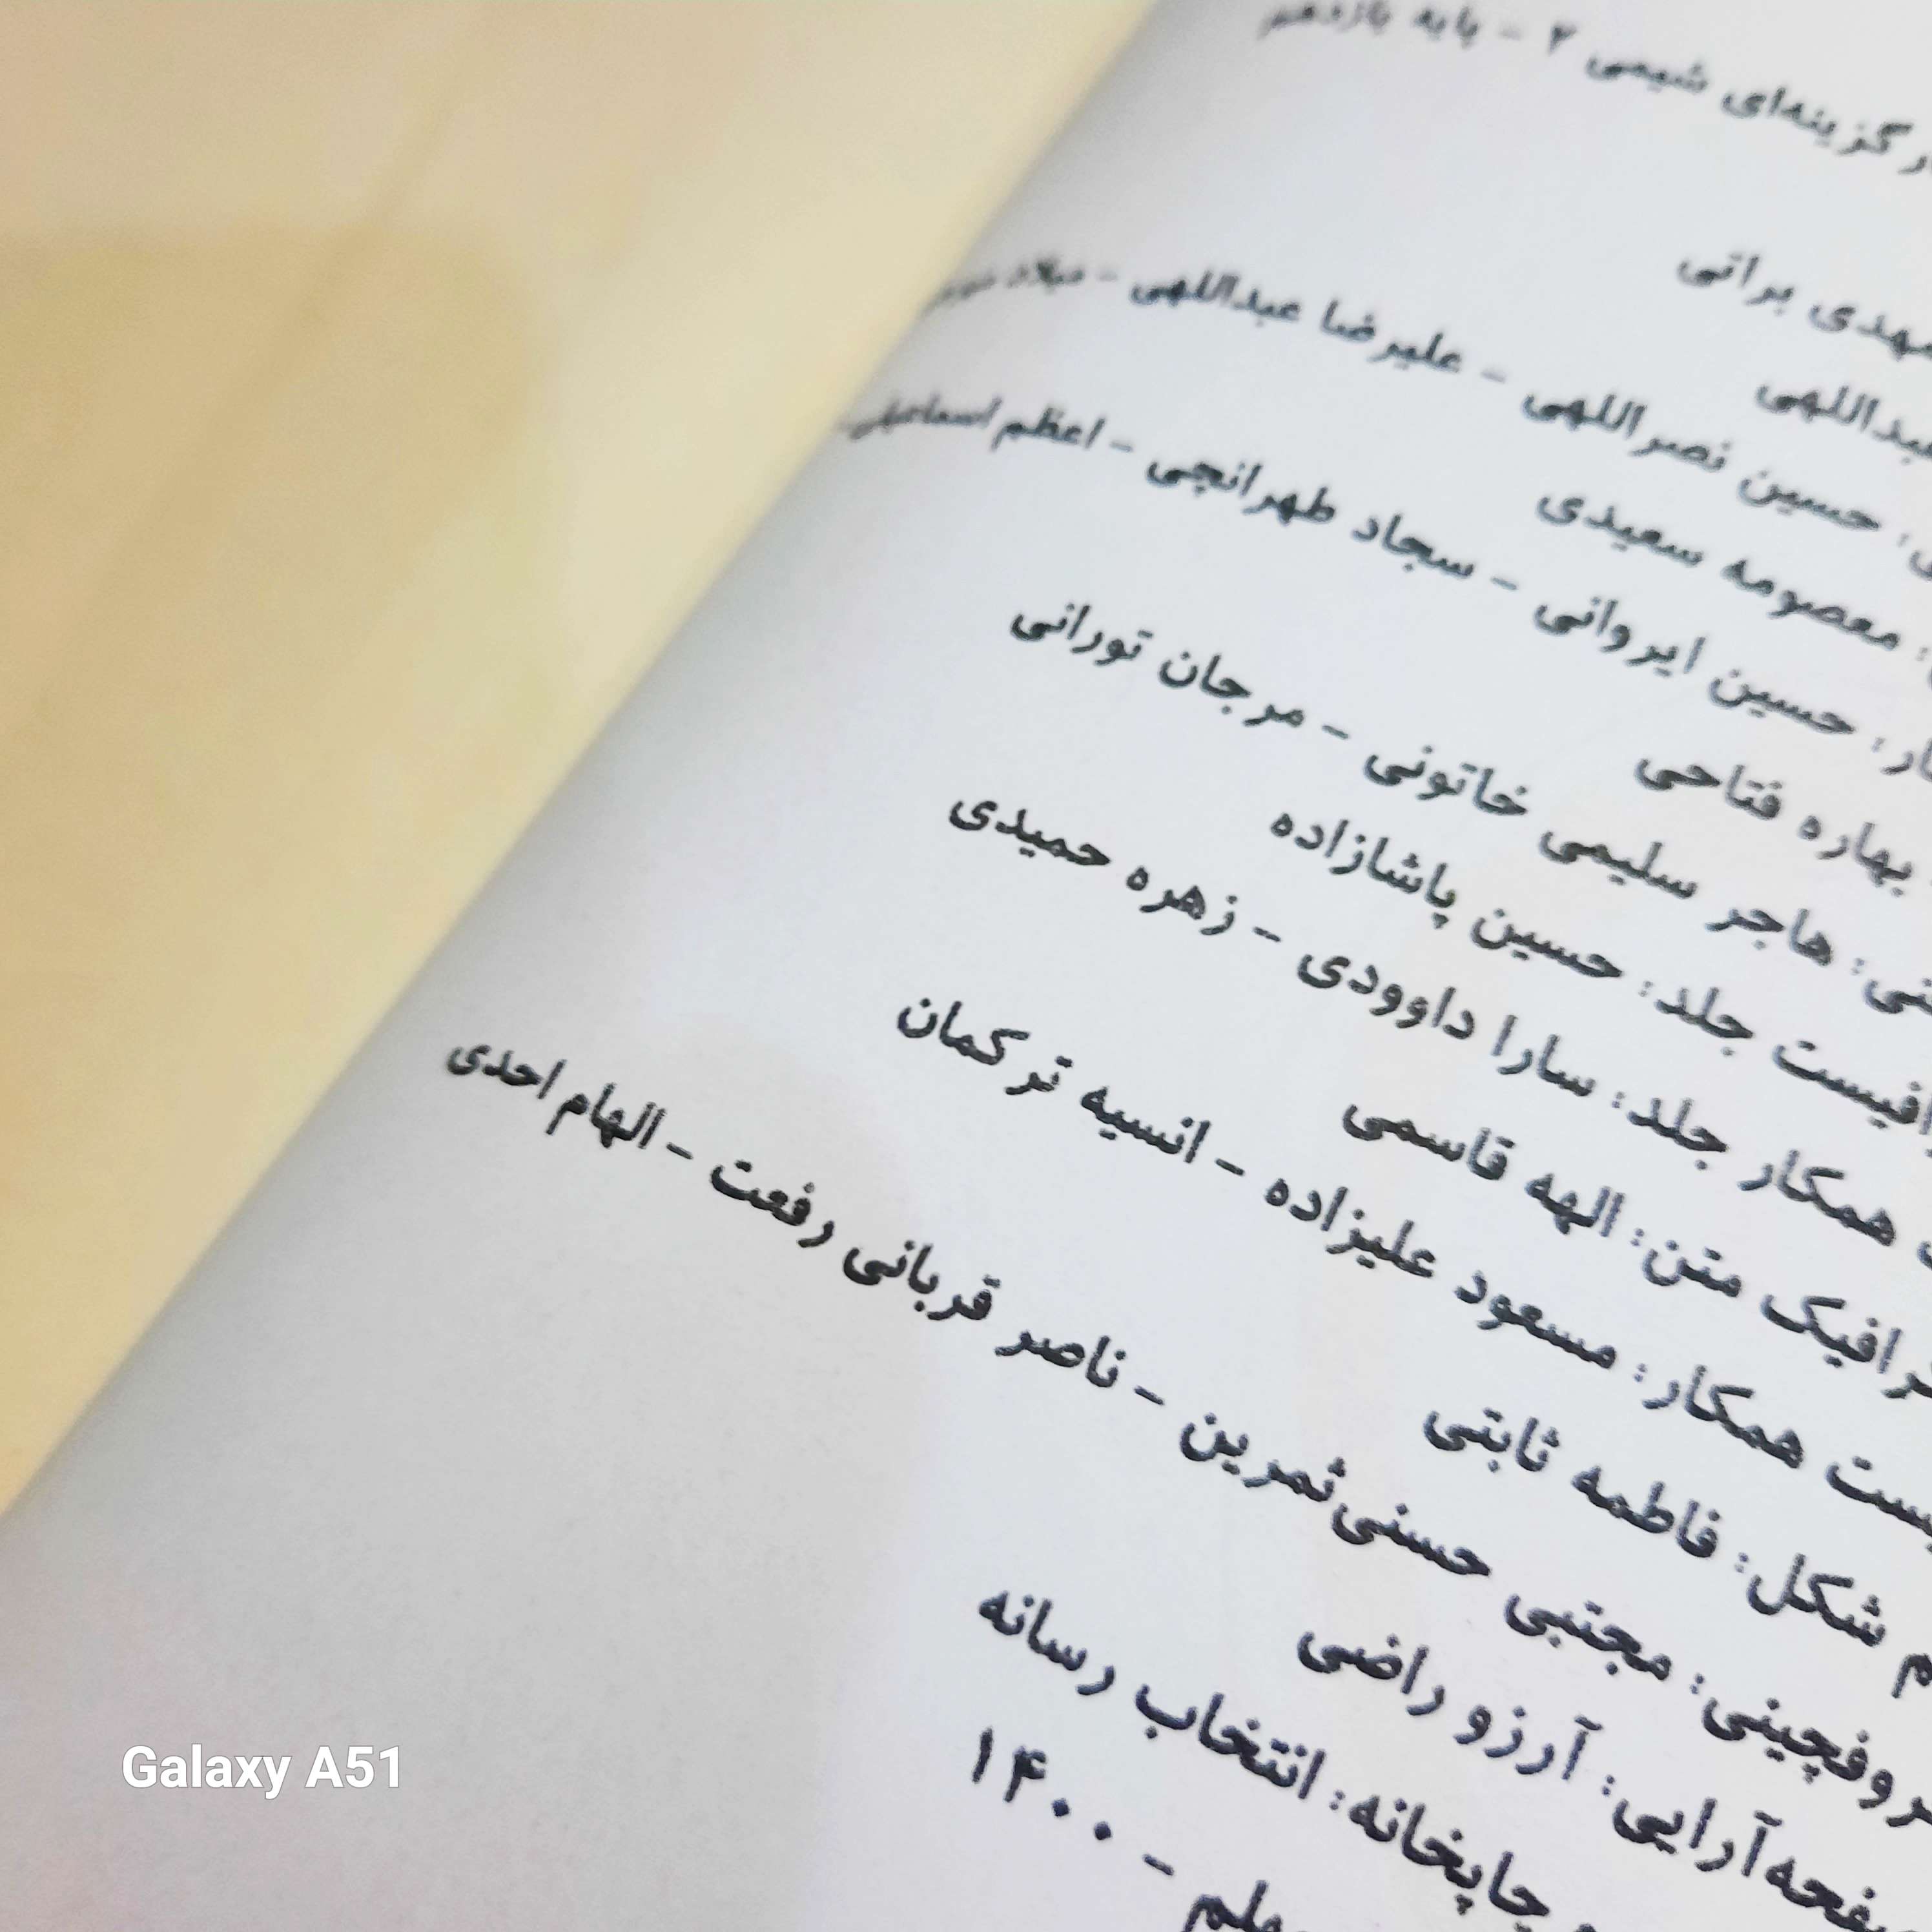 گزینه‌ای شیمی ۲ - پایه یازدهم
مهدی براتی
عبداللهی
حسین نصراللهی - علیرضا عبداللهی - میلاد
معصومه سعیدی
حسین ایروانی - سجاد طهرانچی - اعظم اسماعیلی
بهاره فتاحی
هاجر سلیمی خاتونی - مرجان تورانی
جلد: حسین پاشازاده
همکار جلد: سارا داوودی - زهره حمیدی
گرافیک متن: الهه قاسمی
همکار: مسعود علیزاده - انسیه ترکمان
شکل: فاطمه ثابتی
حروفچینی: مجتبی حسنی‌ثمرین - ناصر قربانی رفعت - الهام احدی
صفحه‌آرایی: آرزو راضی
چاپخانه: انتخاب رسانه
- ۱۴۰۰
Galaxy A51